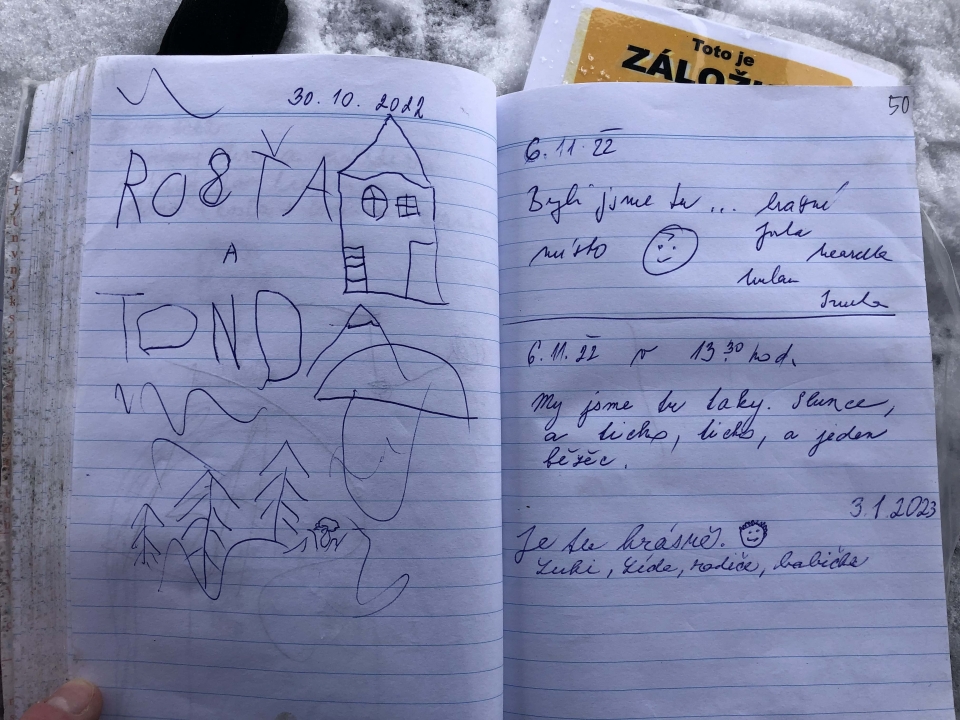 30. 10. 2022
ROSŤA
A
TONDA
Toto je
ZÁLOŽ
50
6. 11. 22
Byli jsme tu ... krásné
místo
6. 11. 22 v 13 30 hod.
My jsme tu taky. Slunce,
a ticho, ticho, a jeden
běžec.
3.1.2023
Je tu krásně.
Lída, rodiče, babička